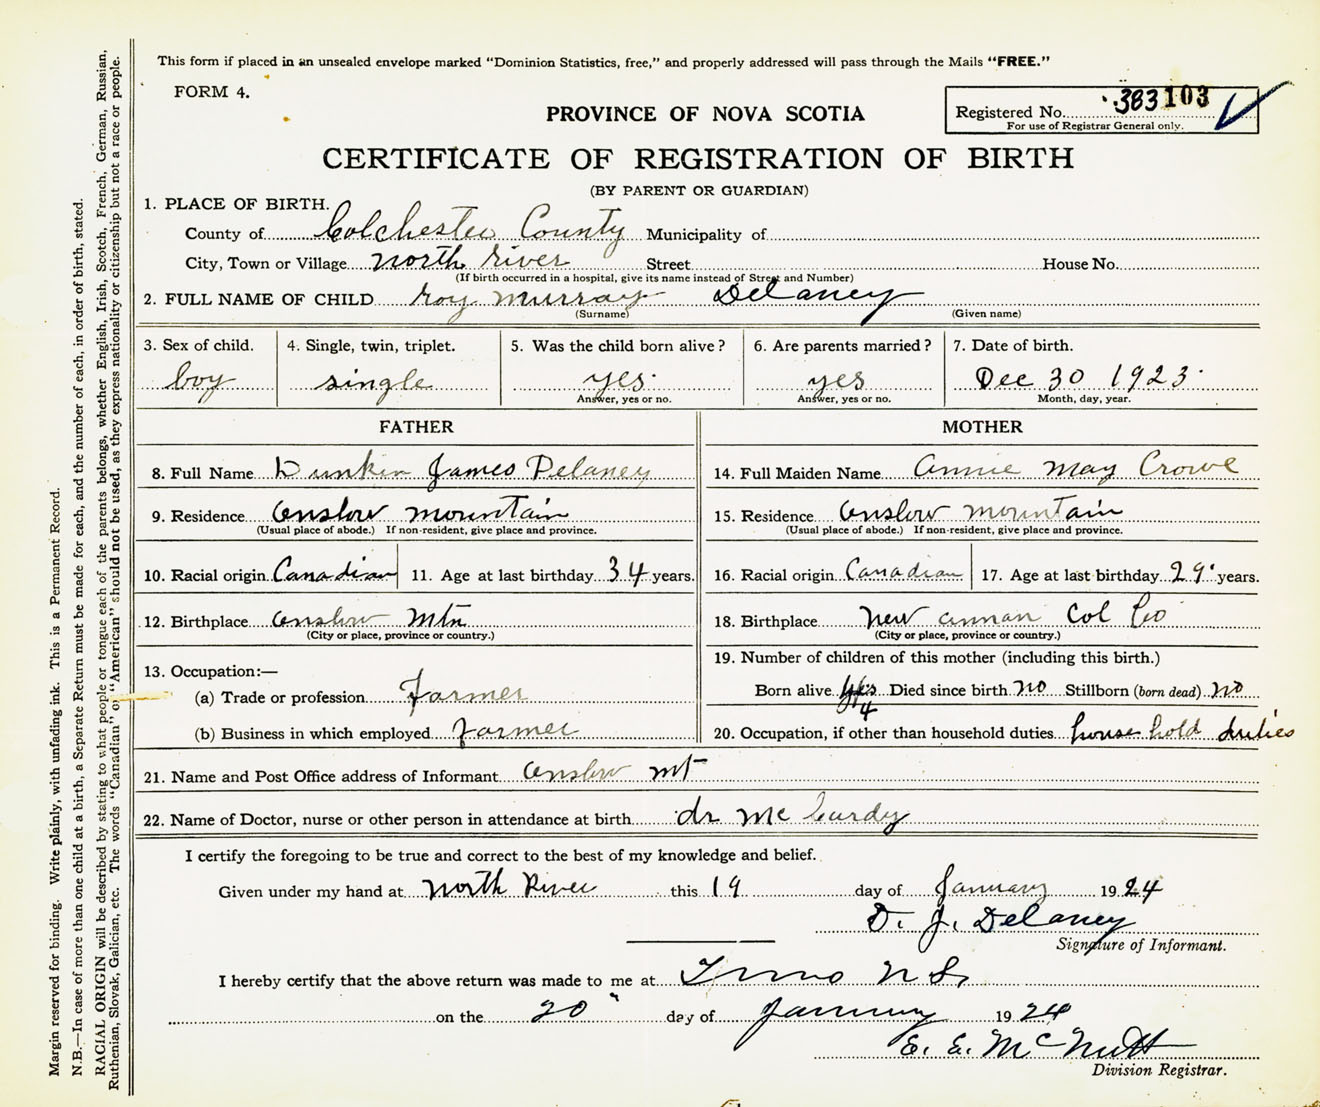 This form if placed in an unsealed envelope marked "Dominion Statistics, free," and properly addressed will pass through the Mails "FREE."
FORM 4.
PROVINCE OF NOVA SCOTIA
Registered No. 383 103
For use of Registrar General only.
CERTIFICATE OF REGISTRATION OF BIRTH
(BY PARENT OR GUARDIAN)
1. PLACE OF BIRTH.
County of Colchester County Municipality of
City, Town or Village north river Street House No.
(If birth occurred in a hospital, give its name instead of Street and Number)
2. FULL NAME OF CHILD roy murray Delaney
(Surname) (Given name)
3. Sex of child. 4. Single, twin, triplet. 5. Was the child born alive? 6. Are parents married? 7. Date of birth.
boy single yes yes Dec 30 1923
Answer, yes or no. Answer, yes or no. Month, day, year.
FATHER MOTHER
8. Full Name Dunken James Delaney 14. Full Maiden Name annie may Crowe
9. Residence onslow mountain 15. Residence onslow mountain
(Usual place of abode.) If non-resident, give place and province. (Usual place of abode.) If non-resident, give place and province.
10. Racial origin Canadian 11. Age at last birthday 34 years. 16. Racial origin Canadian 17. Age at last birthday 29 years.
12. Birthplace onslow Mtn 18. Birthplace new annan Col Co
(City or place, province or country.) (City or place, province or country.)
13. Occupation:— 19. Number of children of this mother (including this birth.)
(a) Trade or profession Farmer Born alive yes 4 Died since birth no Stillborn (born dead) no
(b) Business in which employed Farmer 20. Occupation, if other than household duties house hold duties
21. Name and Post Office address of Informant onslow mt
22. Name of Doctor, nurse or other person in attendance at birth dr Mc Curdy
I certify the foregoing to be true and correct to the best of my knowledge and belief.
Given under my hand at north River this 19 day of January 1924
D. J. Delaney
Signature of Informant.
I hereby certify that the above return was made to me at Truro N S.
on the 20" day of January 1924
E. E. McNutt
Division Registrar.
Margin reserved for binding. Write plainly, with unfading ink. This is a Permanent Record.
N.B.—In case of more than one child at a birth, a Separate Return must be made for each, and the number of each, in order of birth, stated.
RACIAL ORIGIN will be described by stating to what people or tongue each of the parents belongs, whether English, Irish, Scotch, French, German, Russian,
Ruthenian, Slovak, Galician, etc. The words "Canadian" or "American" should not be used, as they express nationality or citizenship but not a race or people.